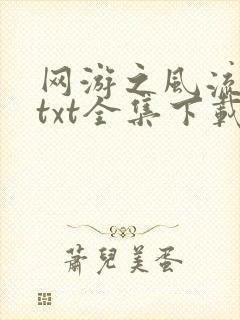 网游之风流
txt全集下载
萧儿美蛋